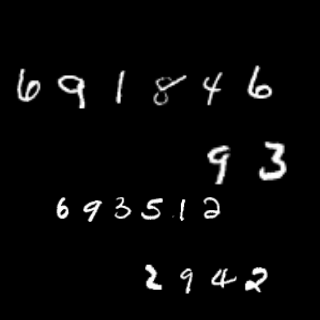 691846
93
693512
2942